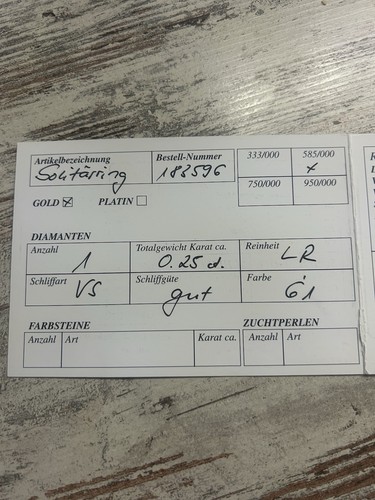 Artikelbezeichnung Bestell-Nummer 333/000 585/000
Solitärring 183596 x
750/000 950/000
GOLD x PLATIN
DIAMANTEN
Anzahl Totalgewicht Karat ca. Reinheit
1 0.25 ct. LR
Schliffart Schliffgüte Farbe
VS gut
FARBSTEINE ZUCHTPERLEN
Anzahl Art Karat ca. Anzahl Art